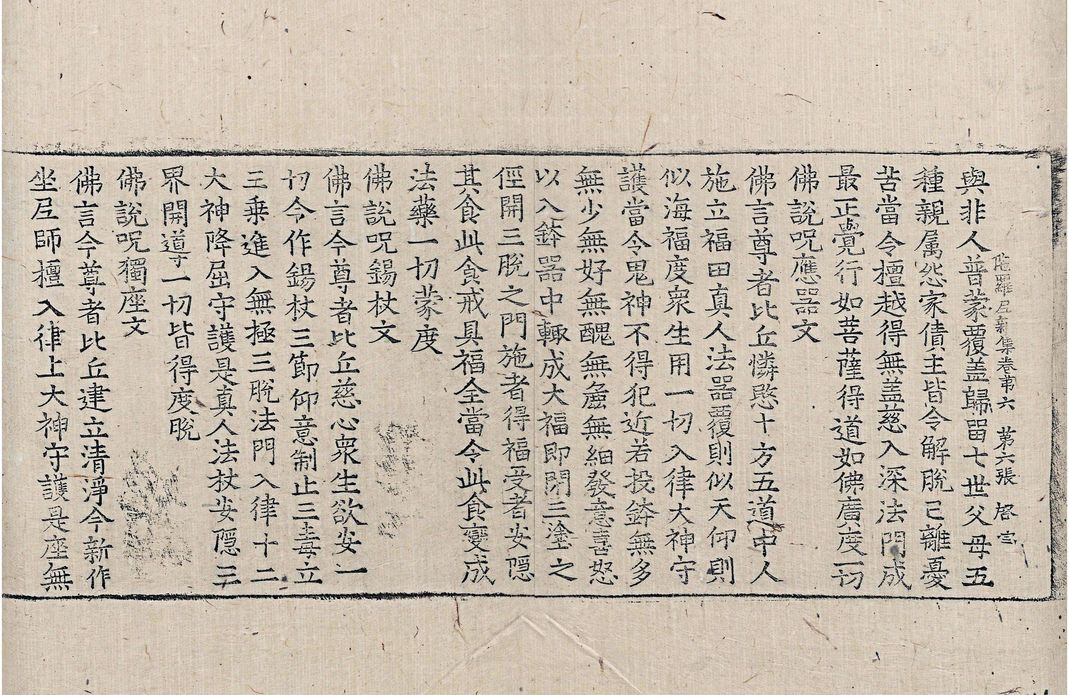 與非人普蒙覆盖歸留七世父母五
陁羅尼雜集卷苐六　第六張　啓
種親属怨家債主皆令解脫已離憂
苦當令檀越得無盖慈入深法門成
最正覺行如菩薩得道如佛廣度一切
佛說呪應器文
佛言尊者比丘憐愍十方五道中人
施立福田真人法器覆則似天仰則
似海福度衆生用一切入律大神守
護當令鬼神不得犯近若投鉢無多
無少無好無醜無麁無細發意喜怒
以入鉢器中輙成大福即閇三塗之
俓開三脫之門施者得福受者安隠
其食此食戒具福全當令此食變成
法藥一切蒙度
佛說呪錫杖文
佛言今尊者比丘慈心衆生欲安一
切今作錫杖三節仰意制止三毒立
三乗進入無極三脫法門入律十二
大神降屈守護是真人法杖安隠三
界開導一切皆得度脫
佛說呪獨座文
佛言今尊者比丘建立清淨今新作
坐尼師檀入律上大神守護是座無